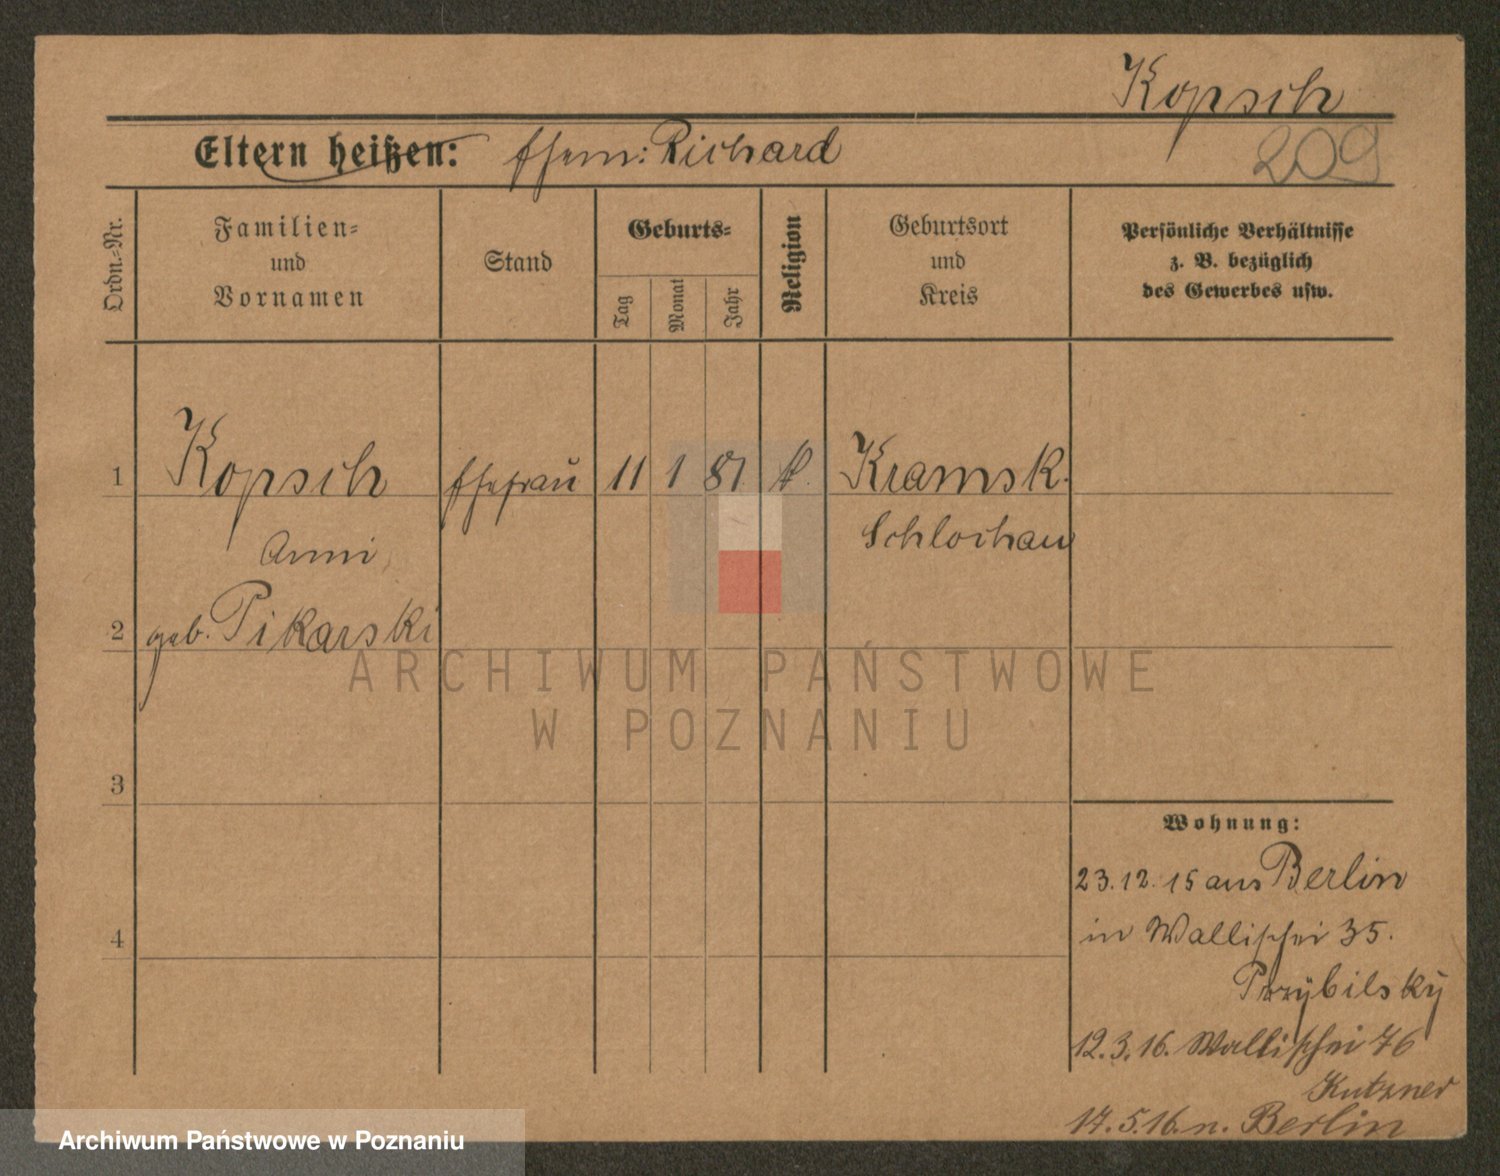 Kopsch
209
Eltern heißen: Ehem: Richard
Ordn.-Nr.
Familien-
und
Vornamen
Stand
Geburts-
Tag
Monat
Jahr
Religion
Geburtsort
und
Kreis
Persönliche Verhältnisse
z. B. bezüglich
des Gewerbes usw.
1 Kopsch Ehefrau 11 1 81 k. Kramsk.
Anni Schlochau
2 geb. Pikarski
3
4
ARCHIWUM PAŃSTWOWE
W POZNANIU
Wohnung:
23.12.15 aus Berlin
in Wallischei 35.
Przybilsky
12.3.16. Wallischei 76
Kutzner
17.5.16. n. Berlin
Archiwum Państwowe w Poznaniu